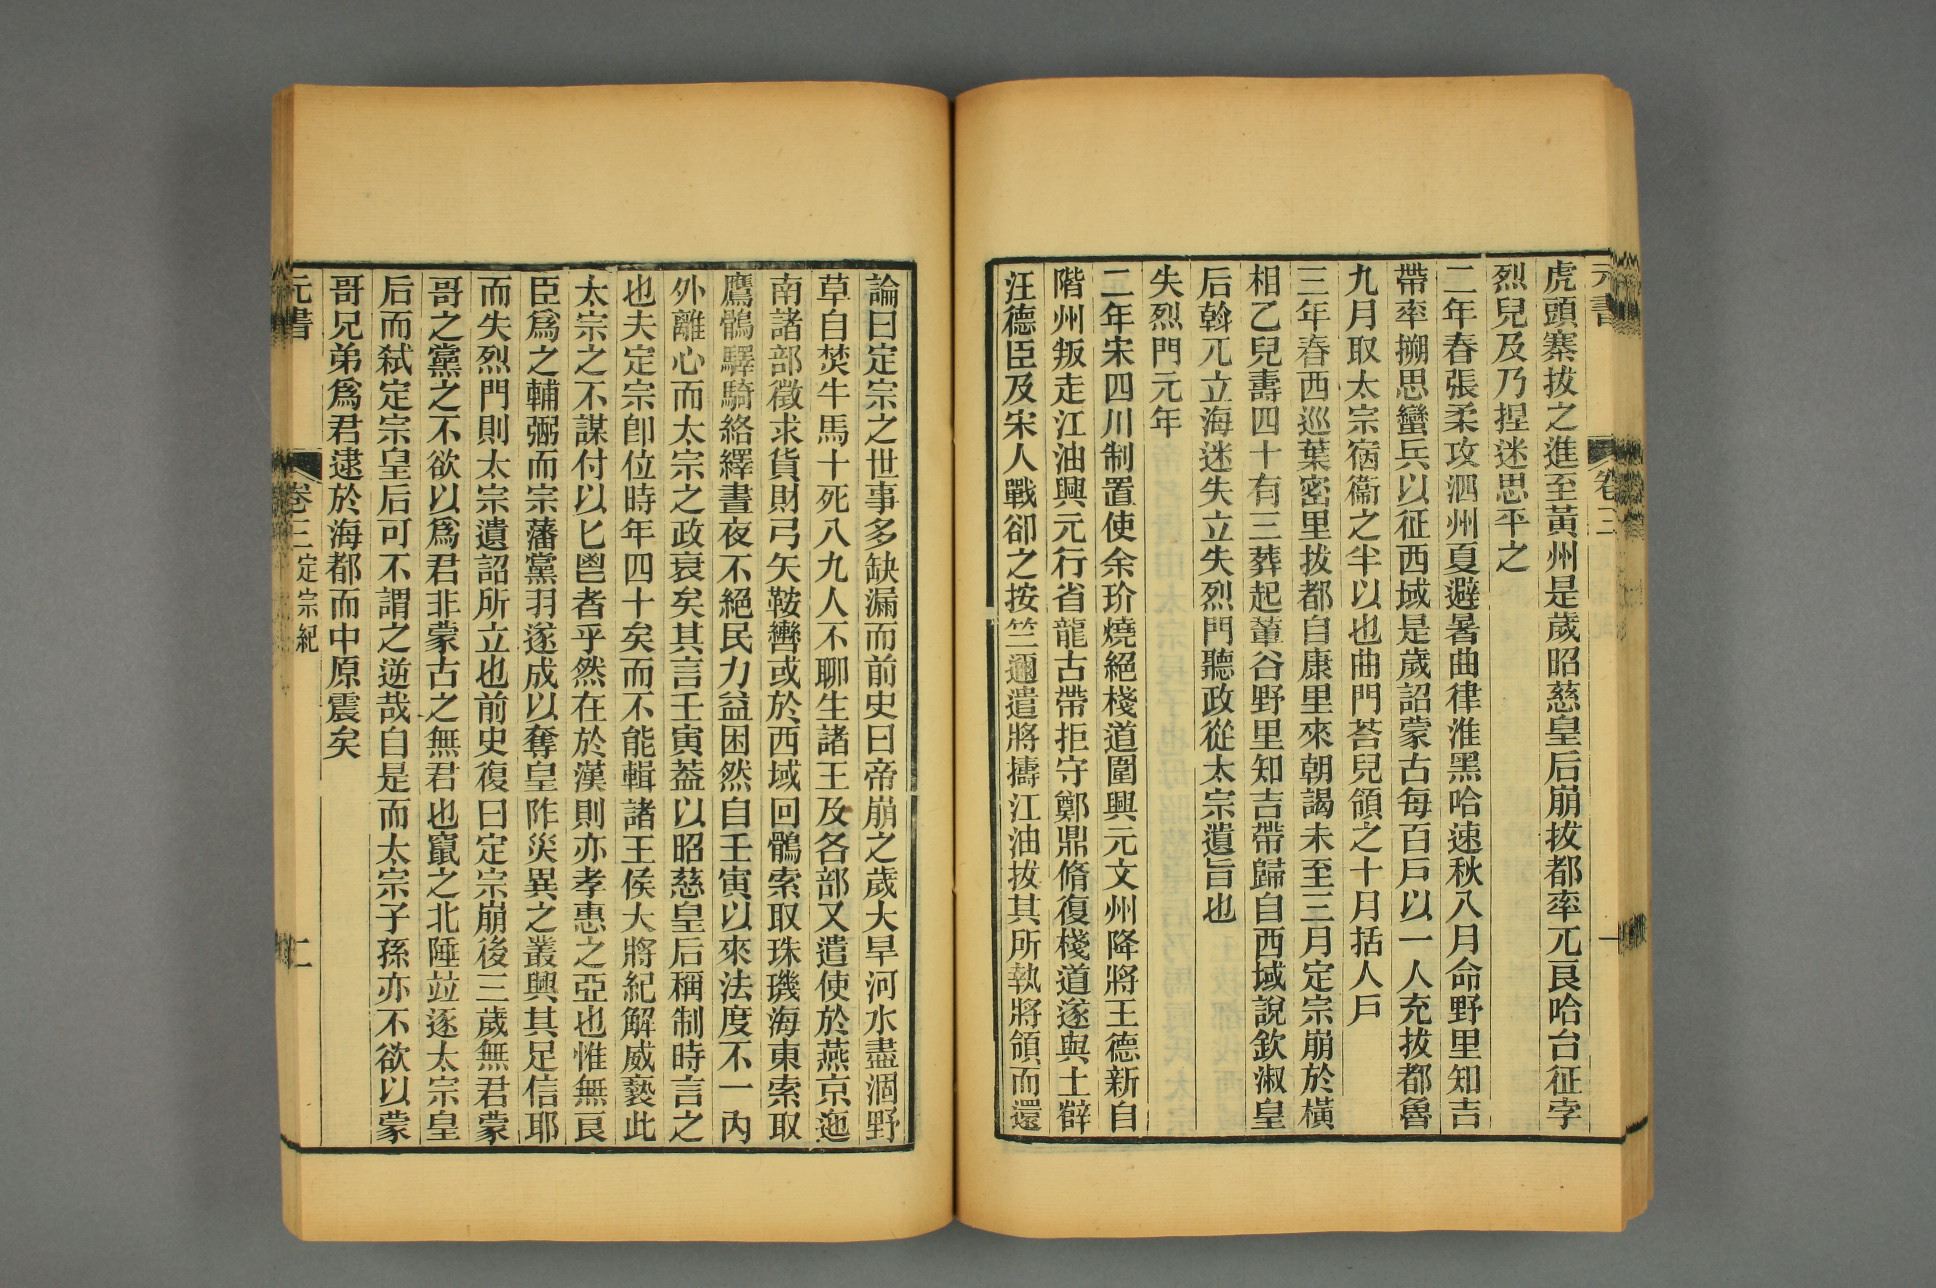 元書
卷三
一
虎頭寨拔之進至黃州是歲昭慈皇后崩拔都率兀良哈台征孛
烈兒及乃捏迷思平之
二年春張柔攻泗州夏避暑曲律淮黑哈速秋八月命野里知吉
帶率搠思蠻兵以征西域是歲詔蒙古每百戶以一人充拔都魯
九月取太宗宿衞之半以也曲門荅兒領之十月括人戶
三年春西巡葉密里拔都自康里來朝謁未至三月定宗崩於橫
相乙兒壽四十有三葬起輦谷野里知吉帶歸自西域說欽淑皇
后斡兀立海迷失立失烈門聽政從太宗遺旨也
失烈門元年
二年宋四川制置使余玠燒絕棧道圍興元文州降將王德新自
階州叛走江油興元行省龍古帶拒守鄭鼎脩復棧道遂與土辥
汪德臣及宋人戰卻之按竺邇遣將擣江油拔其所執將領而還
論曰定宗之世事多缺漏而前史曰帝崩之歲大旱河水盡涸野
草自焚牛馬十死八九人不聊生諸王及各部又遣使於燕京迤
南諸部徵求貨財弓矢鞍轡或於西域回鶻索取珠璣海東索取
鷹鶻驛騎絡繹晝夜不絕民力益困然自壬寅以來法度不一內
外離心而太宗之政衰矣其言壬寅葢以昭慈皇后稱制時言之
也夫定宗卽位時年四十矣而不能輯諸王侯大將紀解威褻此
太宗之不謀付以匕鬯者乎然在於漢則亦孝惠之亞也惟無良
臣爲之輔弼而宗藩黨羽遂成以奪皇阼災異之叢興其足信耶
而失烈門則太宗遺詔所立也前史復曰定宗崩後三歲無君蒙
哥之黨之不欲以爲君非蒙古之無君也竄之北陲竝逐太宗皇
后而弒定宗皇后可不謂之逆哉自是而太宗子孫亦不欲以蒙
哥兄弟爲君逮於海都而中原震矣
元書
卷三 定宗紀
二